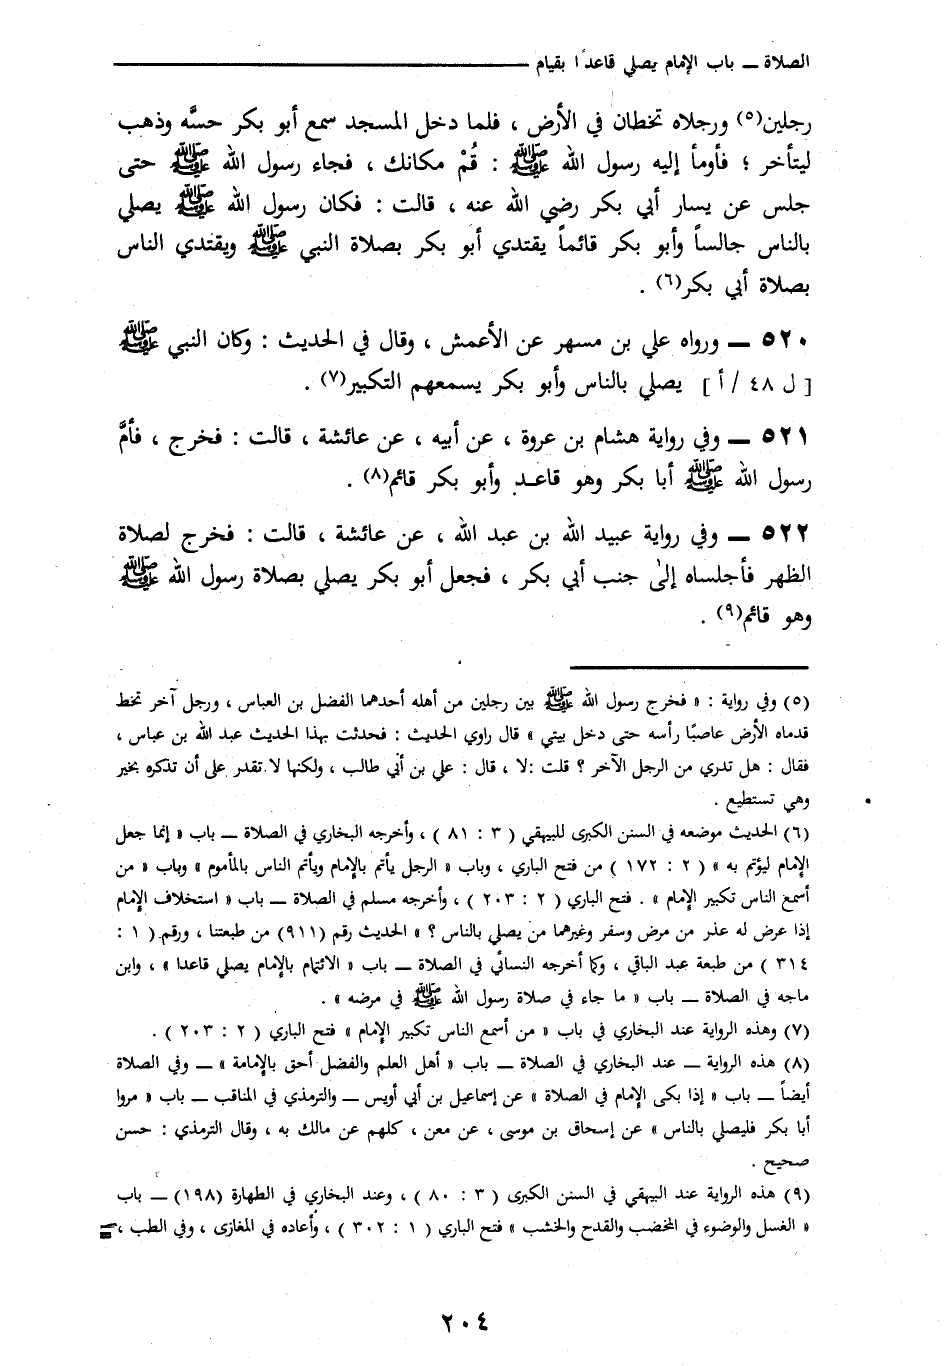 الصلاة ــ باب الإمام يصلي قاعدًا بقيام
رجلين(٥) ورجلاه تخطان في الأرض ، فلما دخل المسجد سمع أبو بكر حسَّه وذهب
ليتأخر ؛ فأومأ إليه رسول الله ﷺ : قُمْ مكانك ، فجاء رسول الله ﷺ حتى
جلس عن يسار أبي بكر رضي الله عنه ، قالت : فكان رسول الله ﷺ يصلي
بالناس جالساً وأبو بكر قائماً يقتدي أبو بكر بصلاة النبي ﷺ ويقتدي الناس
بصلاة أبي بكر(٦) .
٥٢٠ ــ ورواه علي بن مسهر عن الأعمش ، وقال في الحديث : وكان النبي ﷺ
[ ل ٤٨ / أ ] يصلي بالناس وأبو بكر يسمعهم التكبير(٧) .
٥٢١ ــ وفي رواية هشام بن عروة ، عن أبيه ، عن عائشة ، قالت : فخرج ، فأمَّ
رسول الله ﷺ أبا بكر وهو قاعد وأبو بكر قائم(٨) .
٥٢٢ ــ وفي رواية عبيد الله بن عبد الله ، عن عائشة ، قالت : فخرج لصلاة
الظهر فأجلساه إلىٰ جنب أبي بكر ، فجعل أبو بكر يصلي بصلاة رسول الله ﷺ
وهو قائم(٩) .
(٥) وفي رواية : « فخرج رسول الله ﷺ بين رجلين من أهله أحدهما الفضل بن العباس ، ورجل آخر تخط
قدماه الأرض عاصبًا رأسه حتى دخل بيتي » قال راوي الحديث : فحدثت بهذا الحديث عبد الله بن عباس ،
فقال : هل تدري من الرجل الآخر ؟ قلت :لا ، قال : علي بن أبي طالب ، ولكنها لا تقدر على أن تذكره بخير
وهي تستطيع .
(٦) الحديث موضعه في السنن الكبرى للبيهقي ( ٣ : ٨١ ) ، وأخرجه البخاري في الصلاة ــ باب « إنما جعل
الإمام ليؤتم به » ( ٢ : ١٧٢ ) من فتح الباري ، وباب « الرجل يأتم بالإمام ويأتم الناس بالمأموم » وباب « من
أسمع الناس تكبير الإمام » . فتح الباري ( ٢ : ٢٠٣ ) ، وأخرجه مسلم في الصلاة ــ باب « استخلاف الإمام
إذا عرض له عذر من مرض وسفر وغيرهما من يصلي بالناس ؟ » الحديث رقم (٩١١) من طبعتنا ، ورقم ( ١ :
٣١٤ ) من طبعة عبد الباقي ، وكما أخرجه النسائي في الصلاة ــ باب « الائتمام بالإمام يصلي قاعدا » ، وابن
ماجه في الصلاة ــ باب « ما جاء في صلاة رسول الله ﷺ في مرضه » .
(٧) وهذه الرواية عند البخاري في باب « من أسمع الناس تكبير الإمام » فتح الباري ( ٢ : ٢٠٣ ) .
(٨) هذه الرواية ــ عند البخاري في الصلاة ــ باب « أهل العلم والفضل أحق بالإمامة » ــ وفي الصلاة
أيضاً ــ باب « إذا بكى الإمام في الصلاة » عن إسماعيل بن أبي أويس ــ والترمذي في المناقب ــ باب « مروا
أبا بكر فليصلي بالناس » عن إسحاق بن موسى ، عن معن ، كلهم عن مالك به ، وقال الترمذي : حسن
صحيح .
(٩) هذه الرواية عند البيهقي في السنن الكبرى ( ٣ : ٨٠ ) ، وعند البخاري في الطهارة (١٩٨) ــ باب
« الغسل والوضوء في المخضب والقدح والخشب » فتح الباري ( ١ : ٣٠٢ ) ، وأعاده في المغازى ، وفي الطب ، =
٢٠٤